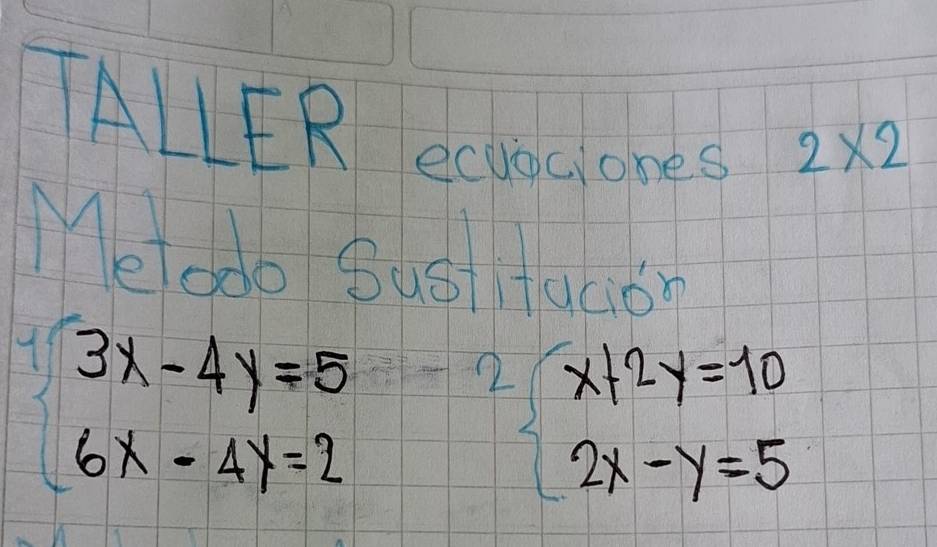 TALLER ecuaciones 2x2
Metodo Sustitución
1 { 3x - 4y = 5 2 { x + 2y = 10
6x - 4y = 2 2x - y = 5